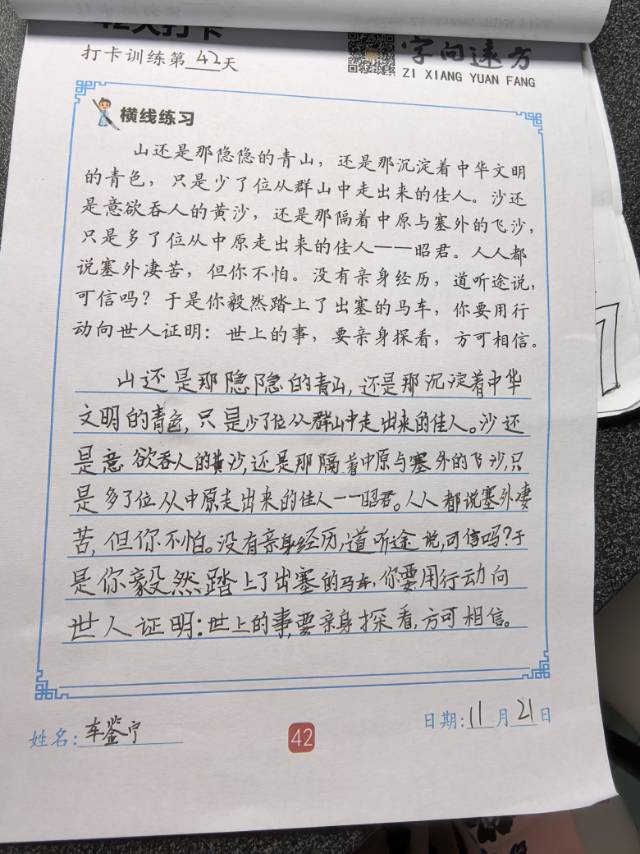 42天打卡
打卡训练第42天
字向远方
ZI XIANG YUAN FANG
横线练习
山还是那隐隐的青山，还是那沉淀着中华文明
的青色，只是少了位从群山中走出来的佳人。沙还
是意欲吞人的黄沙，还是那隔着中原与塞外的飞沙，
只是多了位从中原走出来的佳人——昭君。人人都
说塞外凄苦，但你不怕。没有亲身经历，道听途说，
可信吗？于是你毅然踏上了出塞的马车，你要用行
动向世人证明：世上的事，要亲身探看，方可相信。
山还是那隐隐的青山，还是那沉淀着中华
文明的青色，只是少了位从群山中走出来的佳人。沙还
是意欲吞人的黄沙，还是那隔着中原与塞外的飞沙，只
是多了位从中原走出来的佳人——昭君。人人都说塞外凄
苦，但你不怕。没有亲身经历，道听途说，可信吗？于
是你毅然踏上了出塞的马车，你要用行动向
世人证明：世上的事，要亲身探看，方可相信。
姓名：车鉴宁
42
日期：11月21日